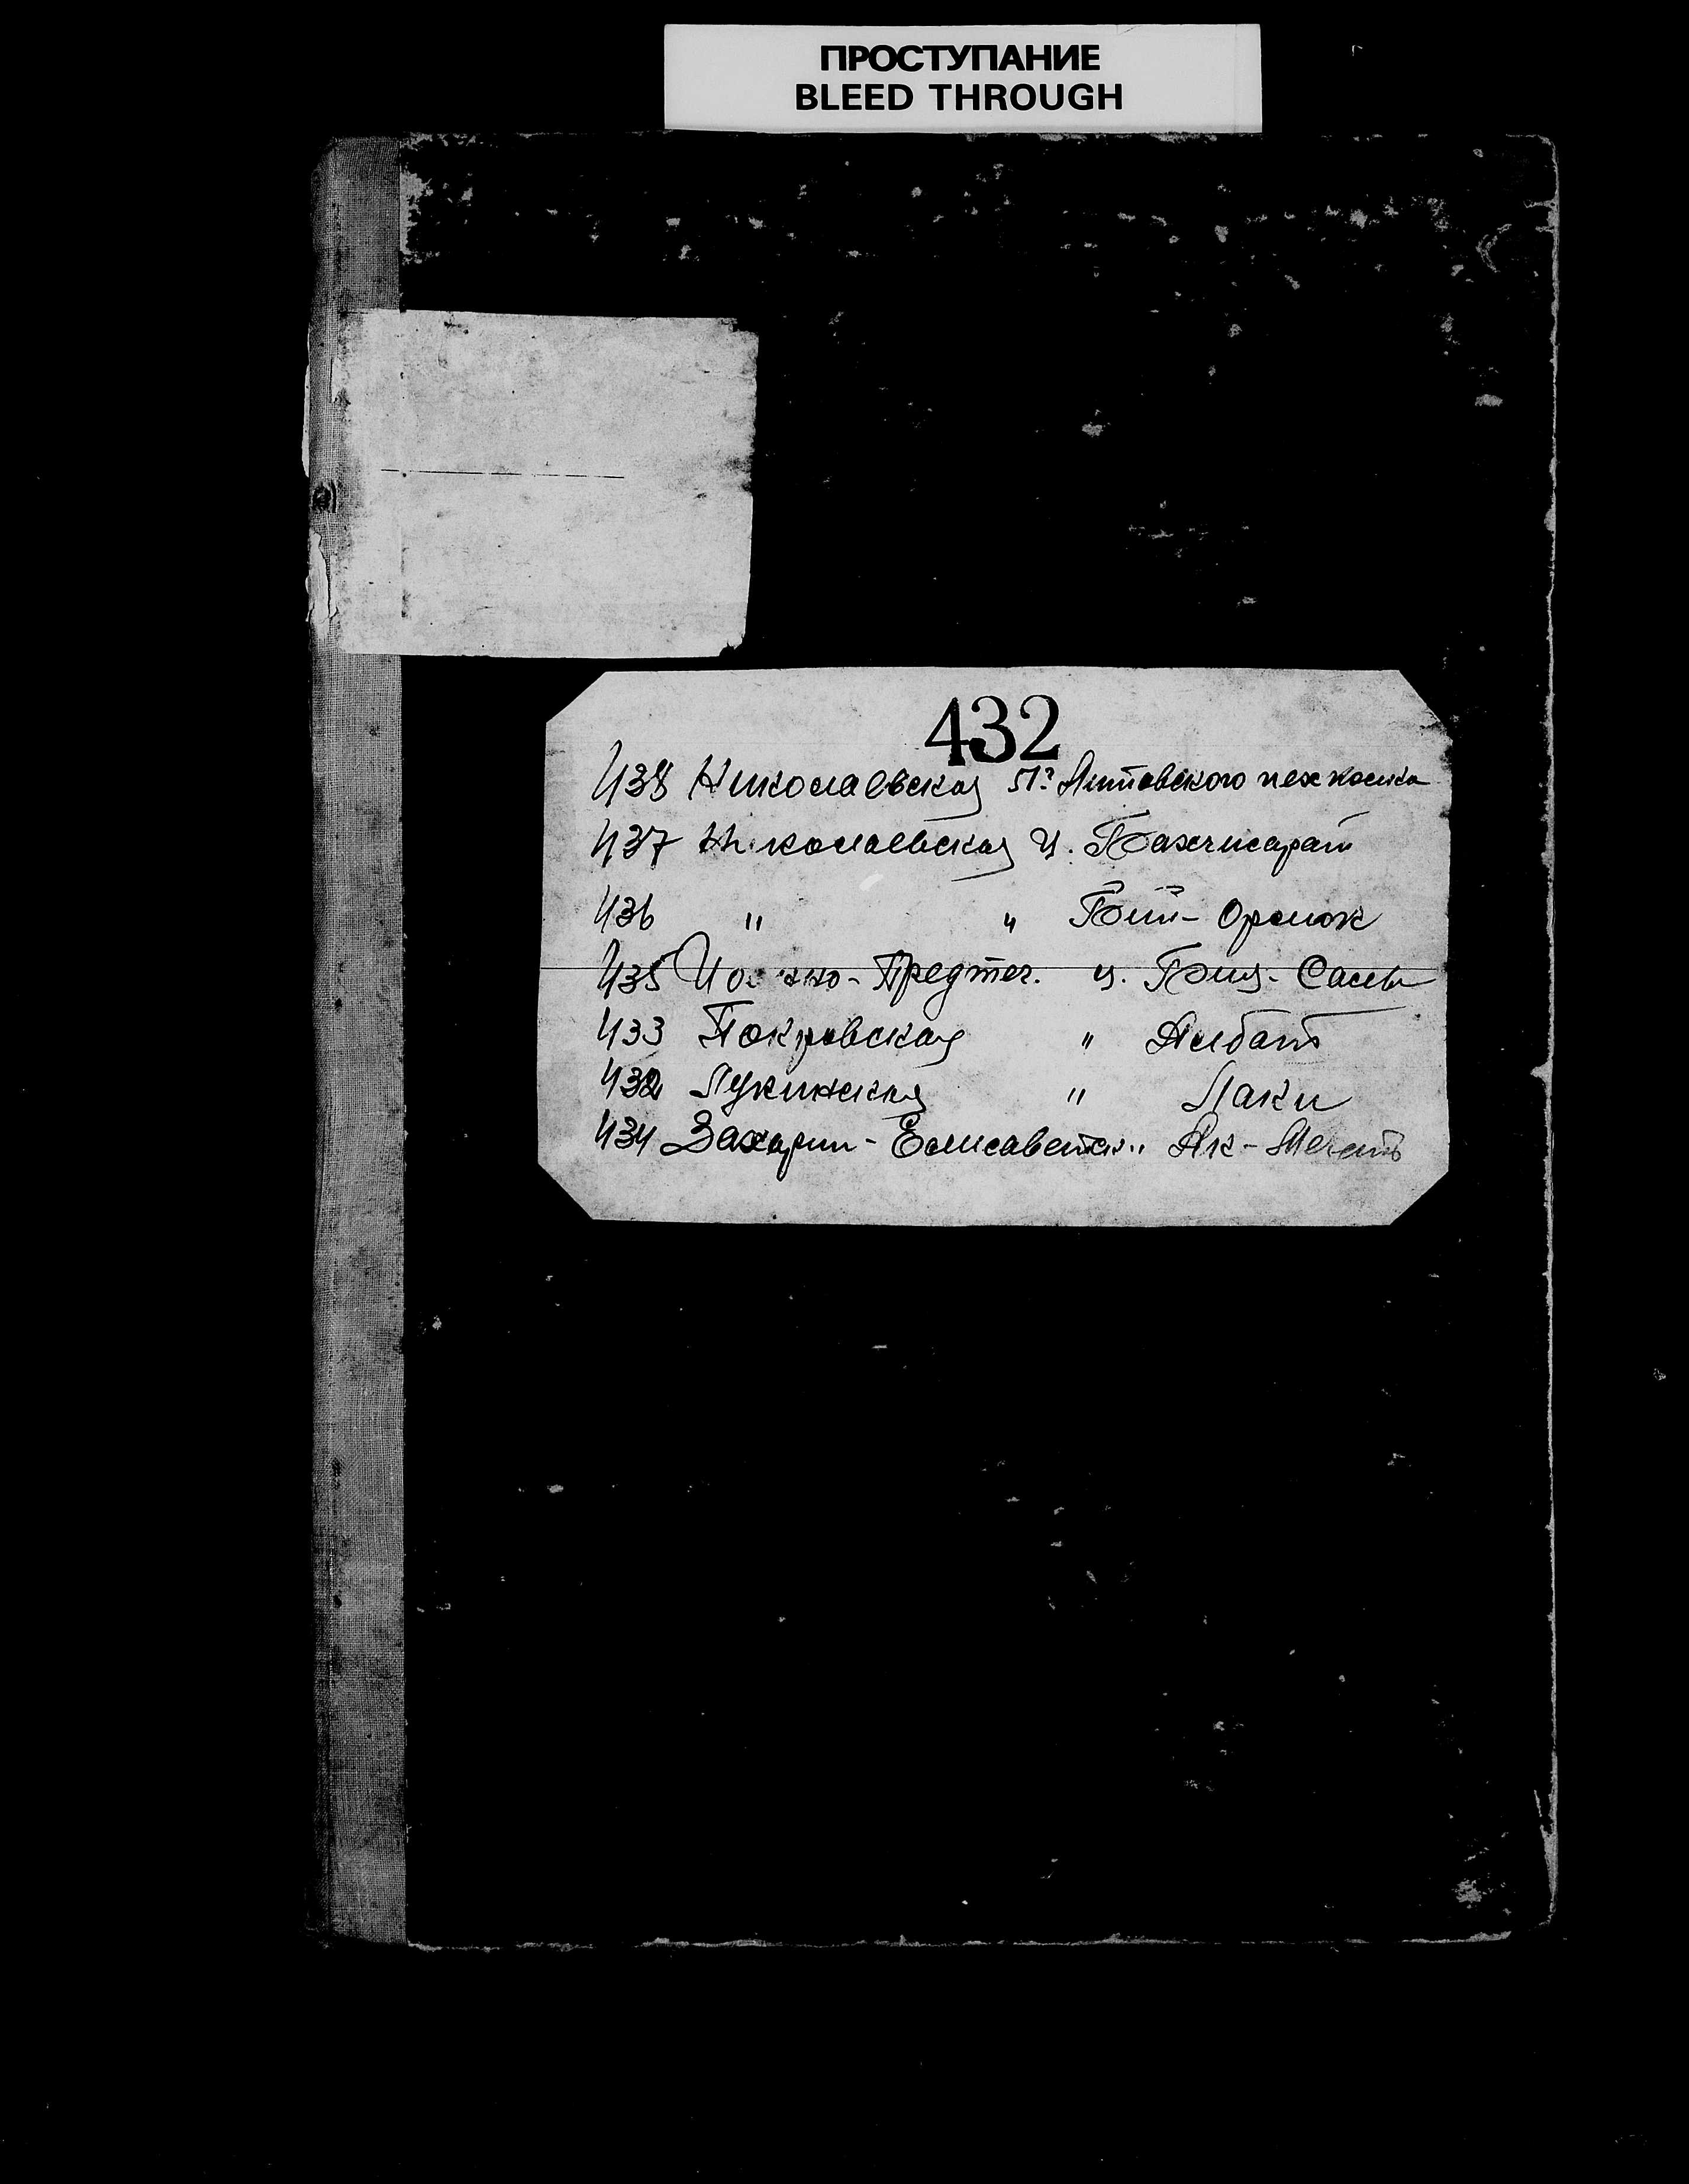 ПРОСТУПАНИЕ
BLEED THROUGH
432
438 Николаевская 51го Литовского пех полка
437 Николаевская ц. Бахчисарай
436 " " Бий-Орлюк
435 Иоанно-Предтеч. ц. Биу-Сала
433 Покровская " Албат
432 Лукинская " Лаки
434 Захарии-Елисаветск. " Ак-Мечеть